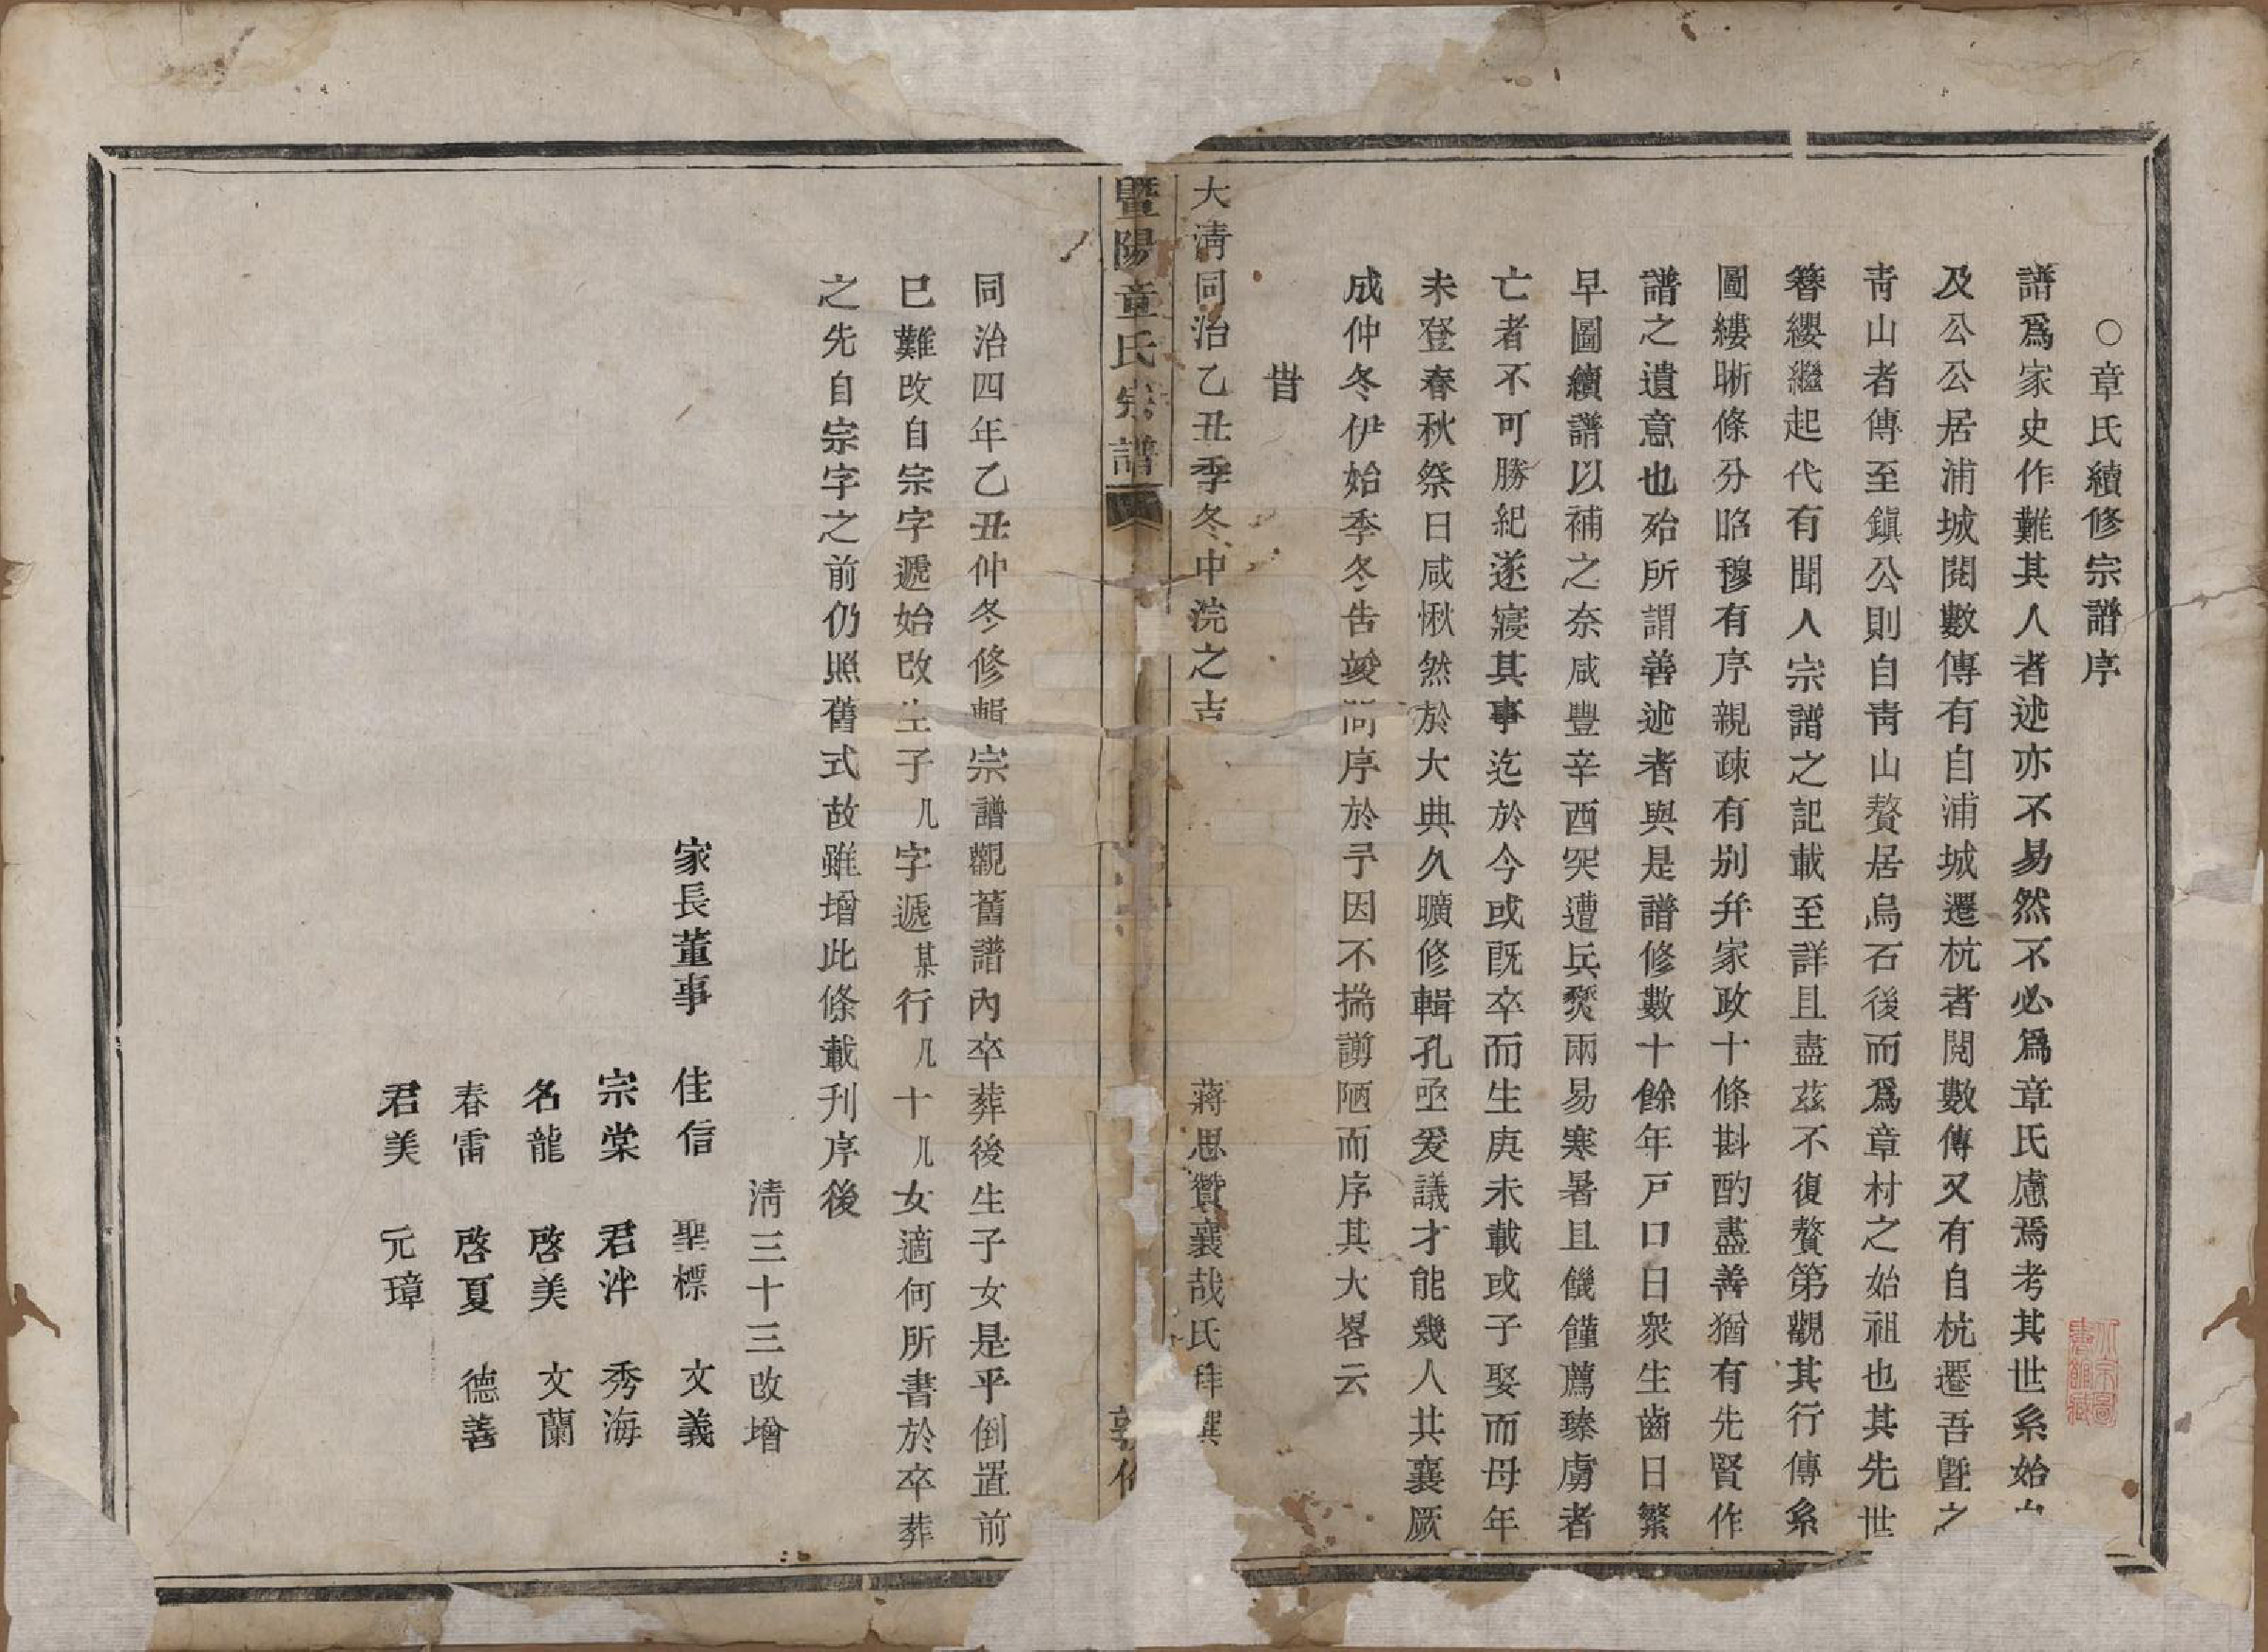 ○章氏續修宗譜序
譜爲家史作難其人者述亦不易然不必爲章氏慮焉考其世系始
及公公居浦城閱數傳有自浦城遷杭者閱數傳又有自杭遷吾暨之
靑山者傳至鎭公則自靑山贅居烏石後而爲章村之始祖也其先世
簪纓繼起代有聞人宗譜之記載至詳且盡茲不復贅第觀其行傳系
圖縷晰條分昭穆有序親疎有別幷家政十條斟酌盡善猶有先賢作
譜之遺意也殆所謂善述者與是譜修數十餘年戸口日衆生齒日繁
早圖續譜以補之奈咸豐辛酉突遭兵燹兩易寒暑且饑饉薦臻虜者
亡者不可勝紀遂寢其事迄於今或旣卒而生庚未載或子娶而母年
未登春秋祭日咸愀然於大典久曠修輯孔亟爰議才能幾人共襄厥
成仲冬伊始季冬告竣問序於予因不揣譾陋而序其大畧云
旹
大淸同治乙丑季冬中浣之吉　蔣思贊襄哉氏拜撰
暨陽章氏宗譜
敦
同治四年乙丑仲冬修輯宗譜觀舊譜內卒葬後生子女是乎倒置前
巳難改自宗字遞始改生子几字遞某行几十几女適何所書於卒葬
之先自宗字之前仍照舊式故雖增此條載刋序後
淸三十三改增
家長董事　佳信　聖標　文義
宗棠　君泮　秀海
名龍　啓美　文蘭
春雷　啓夏　德善
君美　元璋